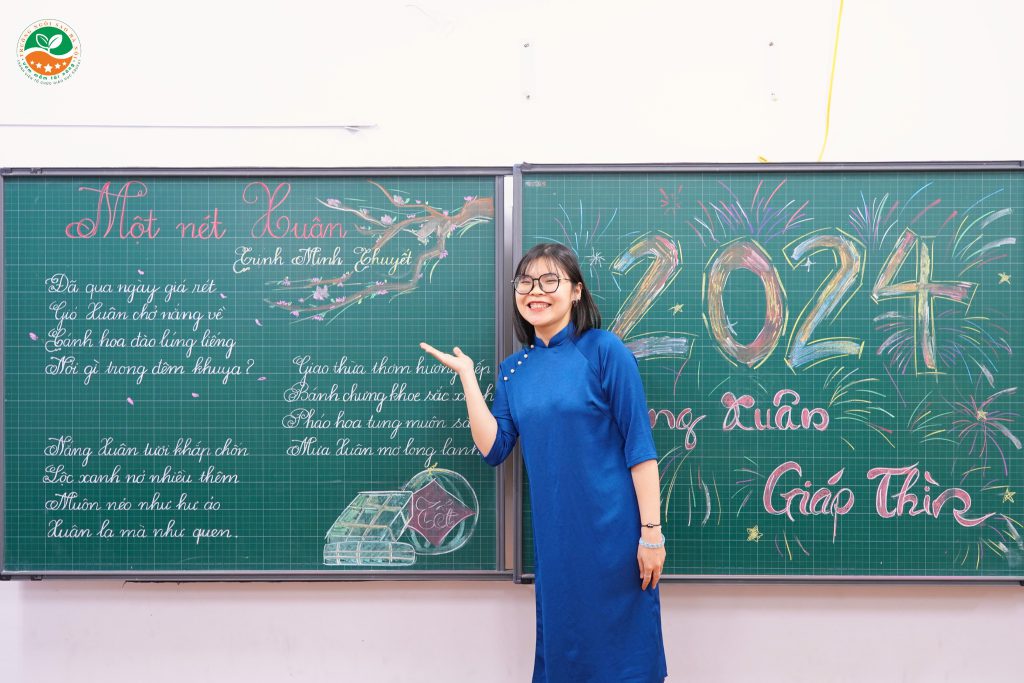 TRƯỜNG NGÔI SAO HÀ NỘI
ươm mầm tài năng
Một nét Xuân
Trịnh Minh Thuyết
Đã qua ngày giá rét
Gió Xuân chở nàng về
Cánh hoa đào lúng liếng
Nói gì trong đêm khuya?
Giao thừa thơm hương
Bánh chưng khoe sắc
Pháo hoa tung muôn
Mưa Xuân mơ long lanh
Nắng Xuân tươi khắp chốn
Lộc xanh nở nhiều thêm
Muôn nẻo như hư ảo
Xuân lạ mà như quen.
2024
Xuân
Giáp Thìn